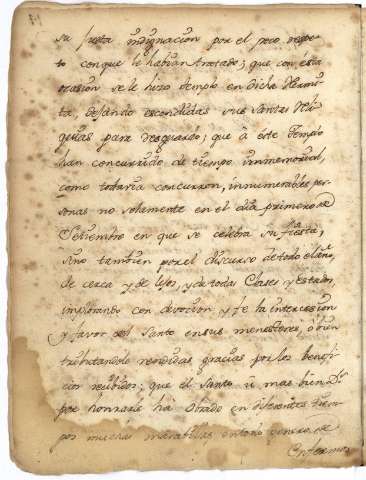 su justa indignacion por el poco respe-
to con que le habian tratado; que con esta
ocasion se le hizo templo en dicha Hermi-
ta, dejando escondidas sus santas Reli-
quias para resguardo; que à este templo
han concurrido de tiempo inmemorial,
como todavia concurren, innumerables per-
sonas no solamente en el dia primero de
Setiembre en que se celebra su fiesta,
sino tambien por el discurso de todo el año,
de cerca y de lejos, y de todas Clases y estados,
implorando con devocion y fe la intercesion
y favor del Santo en sus menesteres, ò bien
tributandole rendidas gracias por los benefi-
cios recibidos; que el Santo ù mas bien D.s
por honrarle ha obrado en diferentes tiem-
pos muchas marabillas en todo genero de
Enfermos